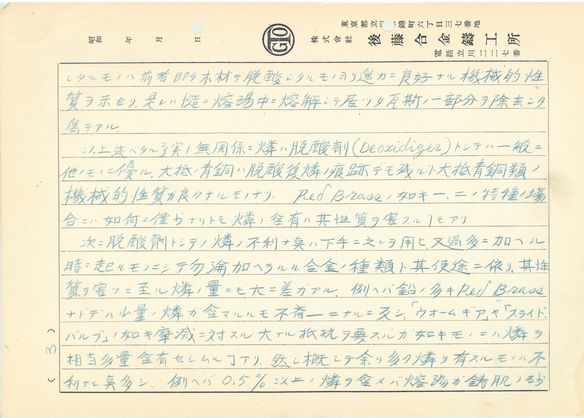 昭和　年　月　日
GTO
東京都立川市錦町六丁目三七番地
株式會社　後藤合金鑄工所
電話立川二二七番
シタルモノハ前者即チ木材デ脱酸シタルモノヨリ遙カニ良好ナル機械的性
質ヲ示セリ、是レ慥ニ熔湯中ニ熔解シテ居ツタ瓦斯ノ一部分ヲ除去シタ
為デアル
以上述ベタル事実ト無関係ニ燐ハ脱酸剤(Deoxidizer)トシテハ一般ニ
他ノモノニ優ル、大抵青銅ハ脱酸後燐ノ痕跡デモ残ルト大抵青銅類ノ
機械的性質ガ良クナルモノナリ、Red Brassノ如キ一、二ノ特種ノ場
合ニハ如何ニ僅少ナリトモ燐ノ含有ハ其性質ヲ害スルコトモアリ
次ニ脱酸剤トシテノ燐ノ不利ナ臭ハ下手ニ之レヲ用ヒ、又過多ニ加ヘル
時ニ起ルモノニシテ勿論加ヘラルル合金ノ種類ト其使途ニ依リ、其性
質ヲ害フニ至ル燐ノ量ニモ大ニ差ガアル、例ヘバ鉛ノ多キRed Brass
ナドデハ少量ノ燐ガ含マルルモ不斉一ニナルニ反シ「ウオームギア」ヤ「スライド
バルブ」ノ如キ摩減ニ対スル大ナル抵抗ヲ要スルガ如キモノニハ燐ヲ
相当多量含有セシムルコトアリ、然シ概シテ余リ多クノ燐ヲ有スルモノハ不
利ナル臭多シ、例ヘバ0.5%以上ノ燐ヲ含メバ熔湯ガ鋳肌ノ砂
(3)